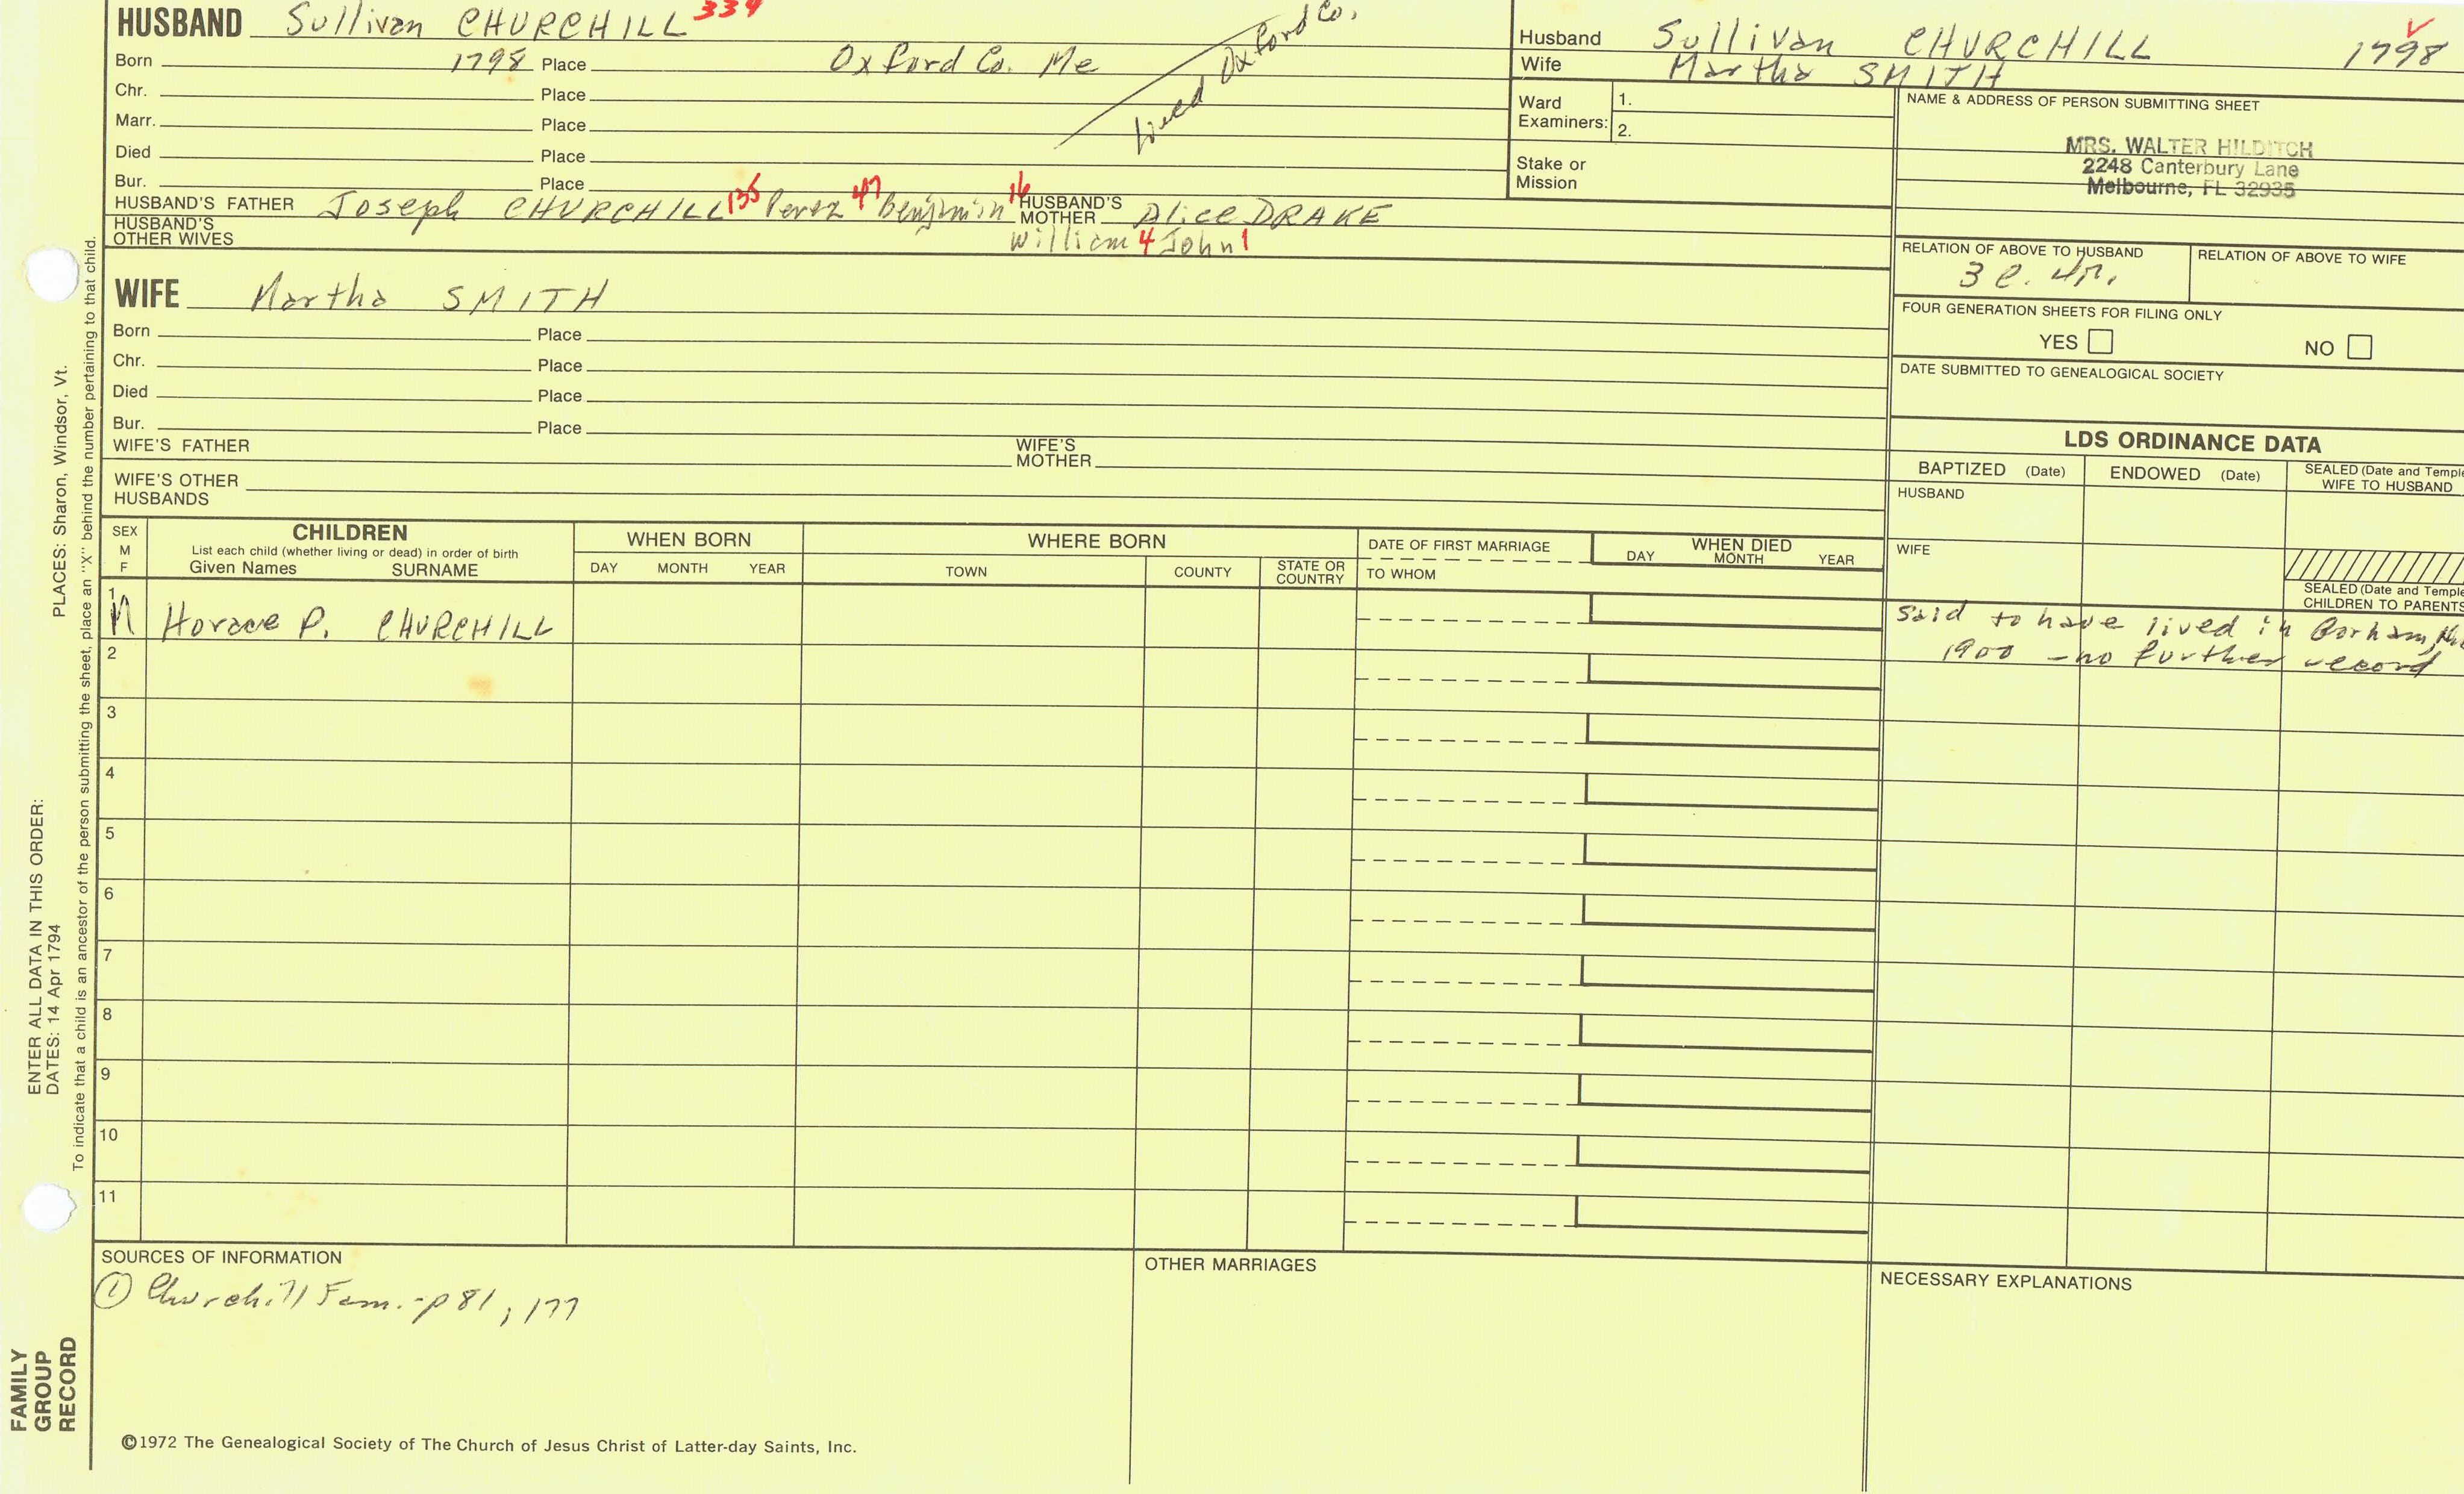 HUSBAND Sullivan CHURCHILL 334
Born 1798 Place Oxford Co. Me
lived Oxford Co.
Chr. Place
Marr. Place
Died Place
Bur. Place
HUSBAND'S FATHER Joseph CHURCHILL 135 Perez 47 Benjmin 16 HUSBAND'S MOTHER Alice DRAKE
HUSBAND'S OTHER WIVES William 4 John 1
Husband Sullivan CHURCHILL 1798
Wife Martha SMITH
Ward Examiners: 1.
2.
Stake or Mission
NAME & ADDRESS OF PERSON SUBMITTING SHEET
MRS. WALTER HILDITCH
2248 Canterbury Lane
Melbourne, FL 32935
RELATION OF ABOVE TO HUSBAND
3 c. 4r.
RELATION OF ABOVE TO WIFE
FOUR GENERATION SHEETS FOR FILING ONLY
YES NO
DATE SUBMITTED TO GENEALOGICAL SOCIETY
WIFE Martha SMITH
Born Place
Chr. Place
Died Place
Bur. Place
WIFE'S FATHER WIFE'S MOTHER
WIFE'S OTHER HUSBANDS
LDS ORDINANCE DATA
BAPTIZED (Date) ENDOWED (Date) SEALED (Date and Temple
WIFE TO HUSBAND
HUSBAND
WIFE
SEALED (Date and Temple
CHILDREN TO PARENTS
SEX
M
F
CHILDREN
List each child (whether living or dead) in order of birth
Given Names SURNAME
WHEN BORN
DAY MONTH YEAR
WHERE BORN
TOWN COUNTY STATE OR COUNTRY
DATE OF FIRST MARRIAGE
TO WHOM
WHEN DIED
DAY MONTH YEAR
1 M Horace P. CHURCHILL
said to have lived in Gorham,
1900 - no further record
2
3
4
5
6
7
8
9
10
11
SOURCES OF INFORMATION
① Churchill Fam. - p 81, 177
OTHER MARRIAGES
NECESSARY EXPLANATIONS
©1972 The Genealogical Society of The Church of Jesus Christ of Latter-day Saints, Inc.
FAMILY
GROUP
RECORD
ENTER ALL DATA IN THIS ORDER:
DATES: 14 Apr 1794
PLACES: Sharon, Windsor, Vt.
To indicate that a child is an ancestor of the person submitting the sheet, place an "X" behind the number pertaining to that child.